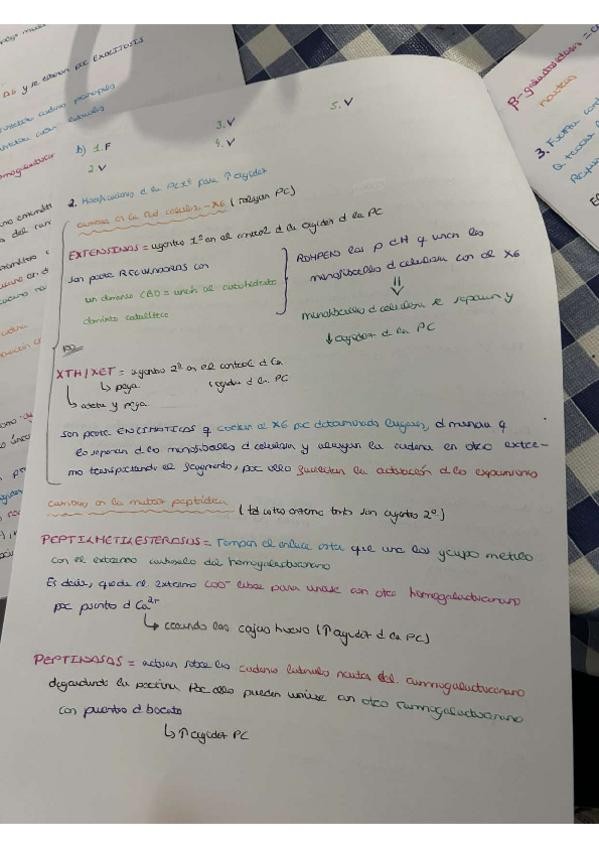 Δ6 y se liberan por EXOCITOSIS
5. V
3. V
b) 1. F
4. V
2. V
β-galactosidasa =
3.
2. Modificaciones d la PCxº para ↑ rigidez
cambios en la red celulosa-X6 (relajan PC)
EXTENSINAS = agentes 1º en el control d la rigidez d la PC
son prots REGULADORAS con
un dominio CBD = unión al carbohidrato
dominio catalítico
ROMPEN los p d H q unen las
microfibrillas d celulosa con el X6
microfibrillas d celulosa se separan y
↓ rigidez d la PC
XTH/XET = agentes 2º en el control d la
↳ pega
rigidez d la PC
↳ corta y pega
son prots ENZIMÁTICAS q cortan el X6 por determinados lugares, d manera q
lo separan d las microfibrillas d celulosa y alargan la cadena en otro extre-
mo transportando el segmento, por ello facilitan la actuación d las expansinas
cambios en la matriz péctica (tal como están son agentes 2º)
PEPTILMETILESTEROSAS = rompen el enlace éster que une los grupo metilo
con el extremo carboxilo del homogalacturonano
Es decir, queda el extremo COO⁻ libre para unirse con otro homogalacturonano
por puente d Ca²⁺
↳ creando las cajas huevo (↑ rigidez d la PC)
PEPTINASAS = actúan sobre las cadenas laterales neutras del ramnogalacturonano
degradando la pectina. Por ello pueden unirse con otro ramnogalacturonano
con puentes d borato
↳ ↑ rigidez PC